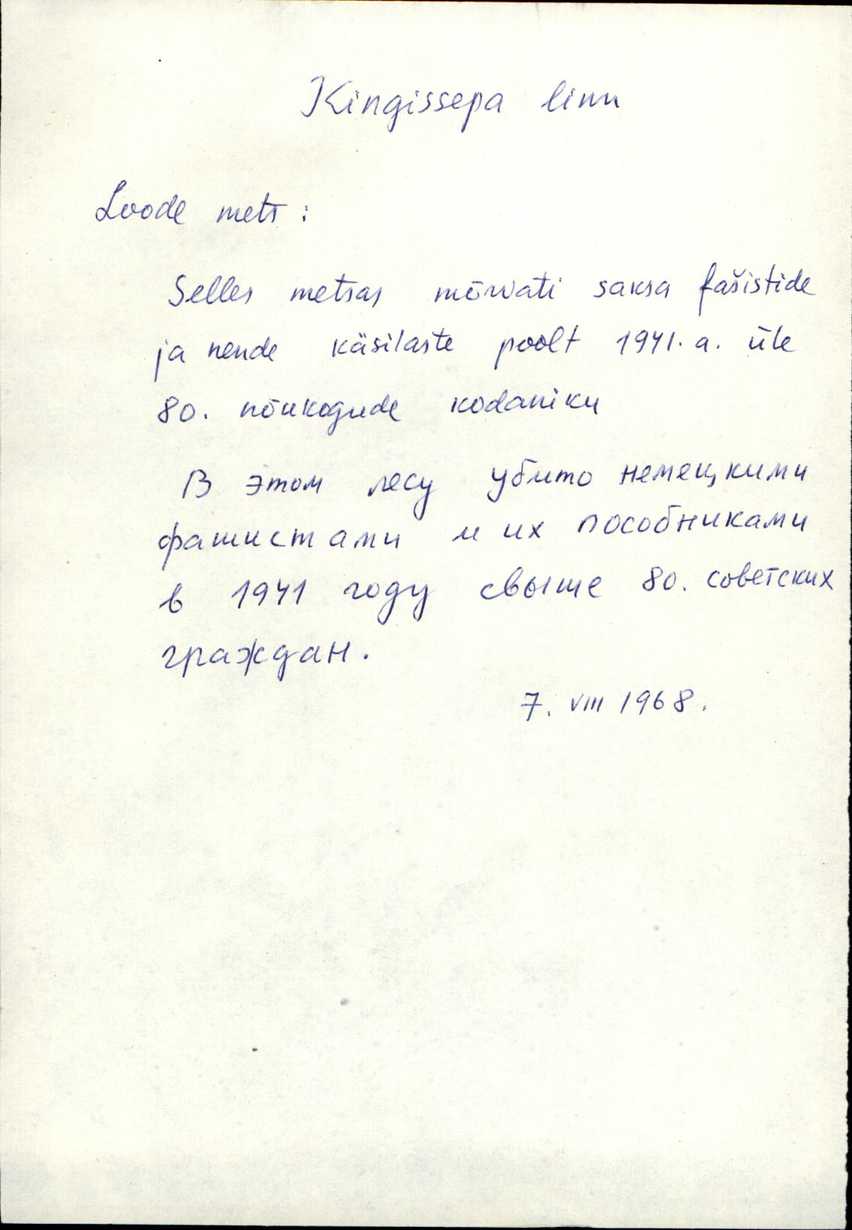 Kingissepa linn
Loode mets :
Selles metsas mõrvati saksa fašistide
ja nende käsilaste poolt 1941. a. üle
80. nõukogude kodaniku
В этом лесу убито немецкими
фашистами и их пособниками
в 1941 году свыше 80. советских
граждан.
7. VIII 1968.